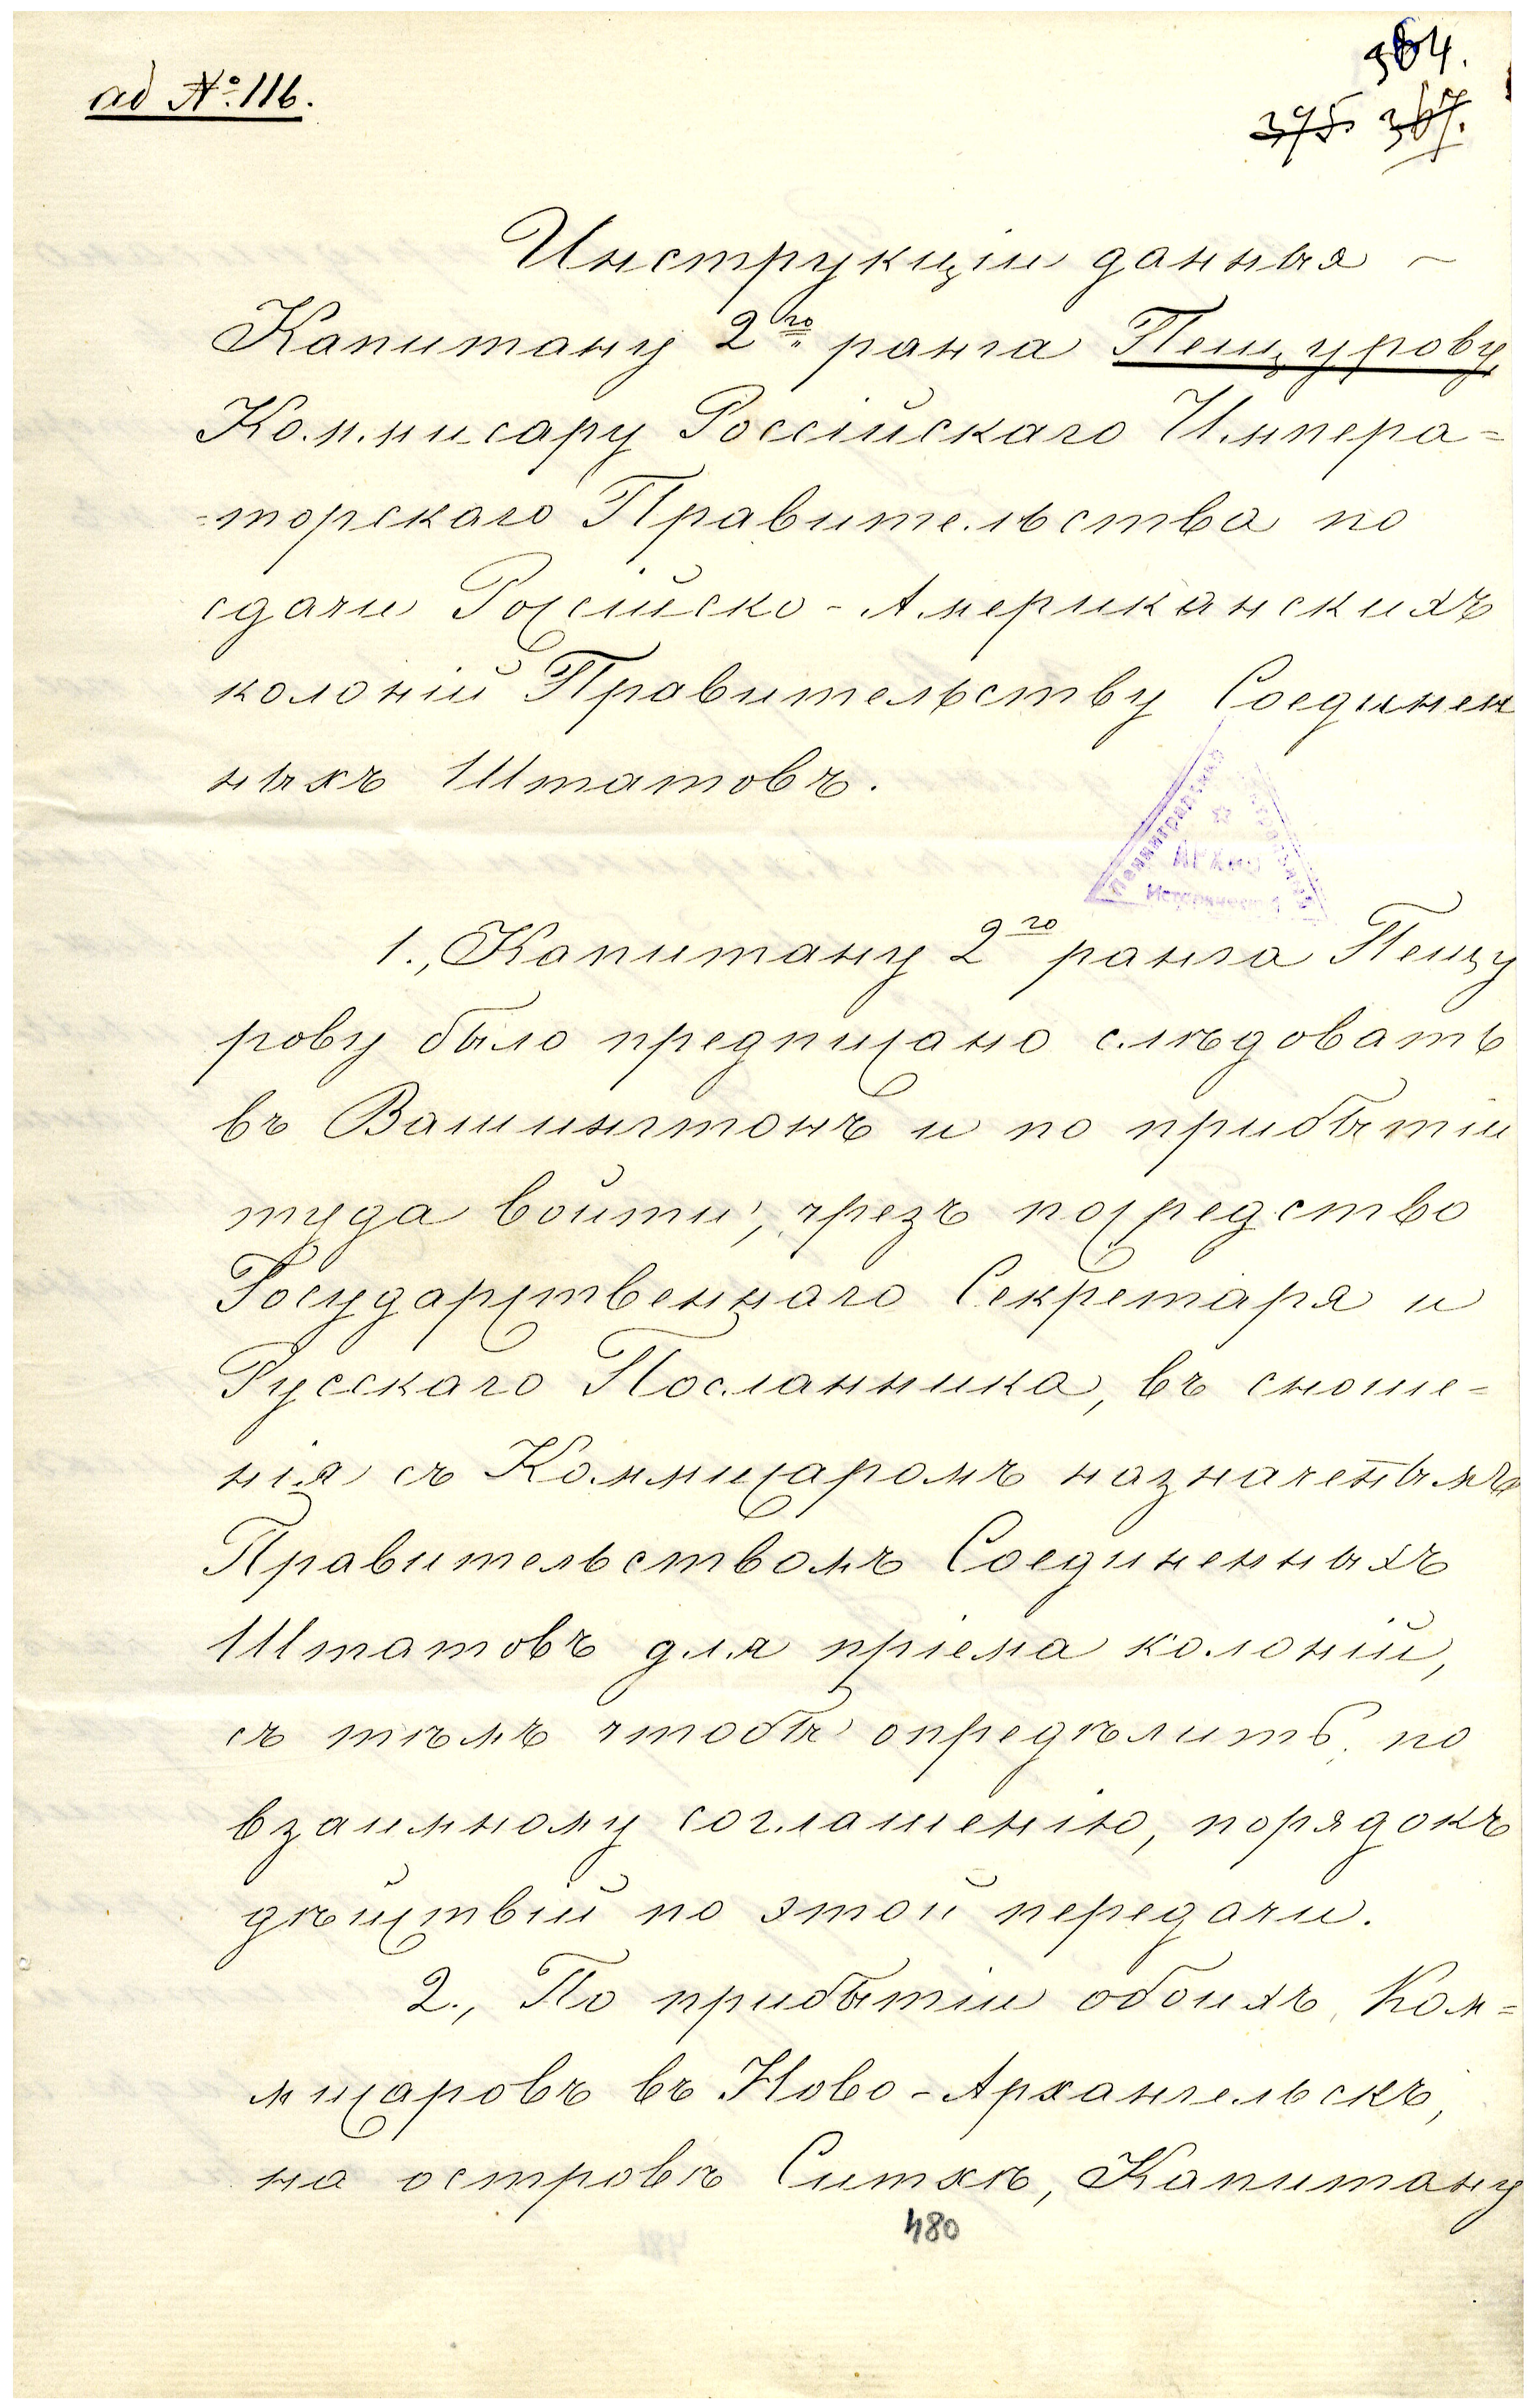 ad №116.
364.
375. 367.
Инструкціи данныя
Капитану 2го ранга Пещурову
Коммисару Россійскаго Импера=
=торскаго Правительства по
сдачи Россійско-Американскихъ
колоній Правительству Соединен
ныхъ Штатовъ.
АРХИВ
1., Капитану 2го ранга Пещу
рову было предписано слѣдовать
въ Вашингтонъ и по прибытіи
туда войти, чрезъ посредство
Государственнаго Секретаря и
Русскаго Посланника, въ сноше=
нія съ Коммисаромъ назначеннымъ
Правительствомъ Соединенныхъ
Штатовъ для пріема колоній,
съ тѣмъ чтобы опредѣлить, по
взаимному соглашенію, порядокъ
дѣйствій по этой передачи.
2., По прибытіи обоихъ Ком=
мисаровъ въ Ново-Архангельскъ,
на островѣ Ситхѣ, Капитану
480